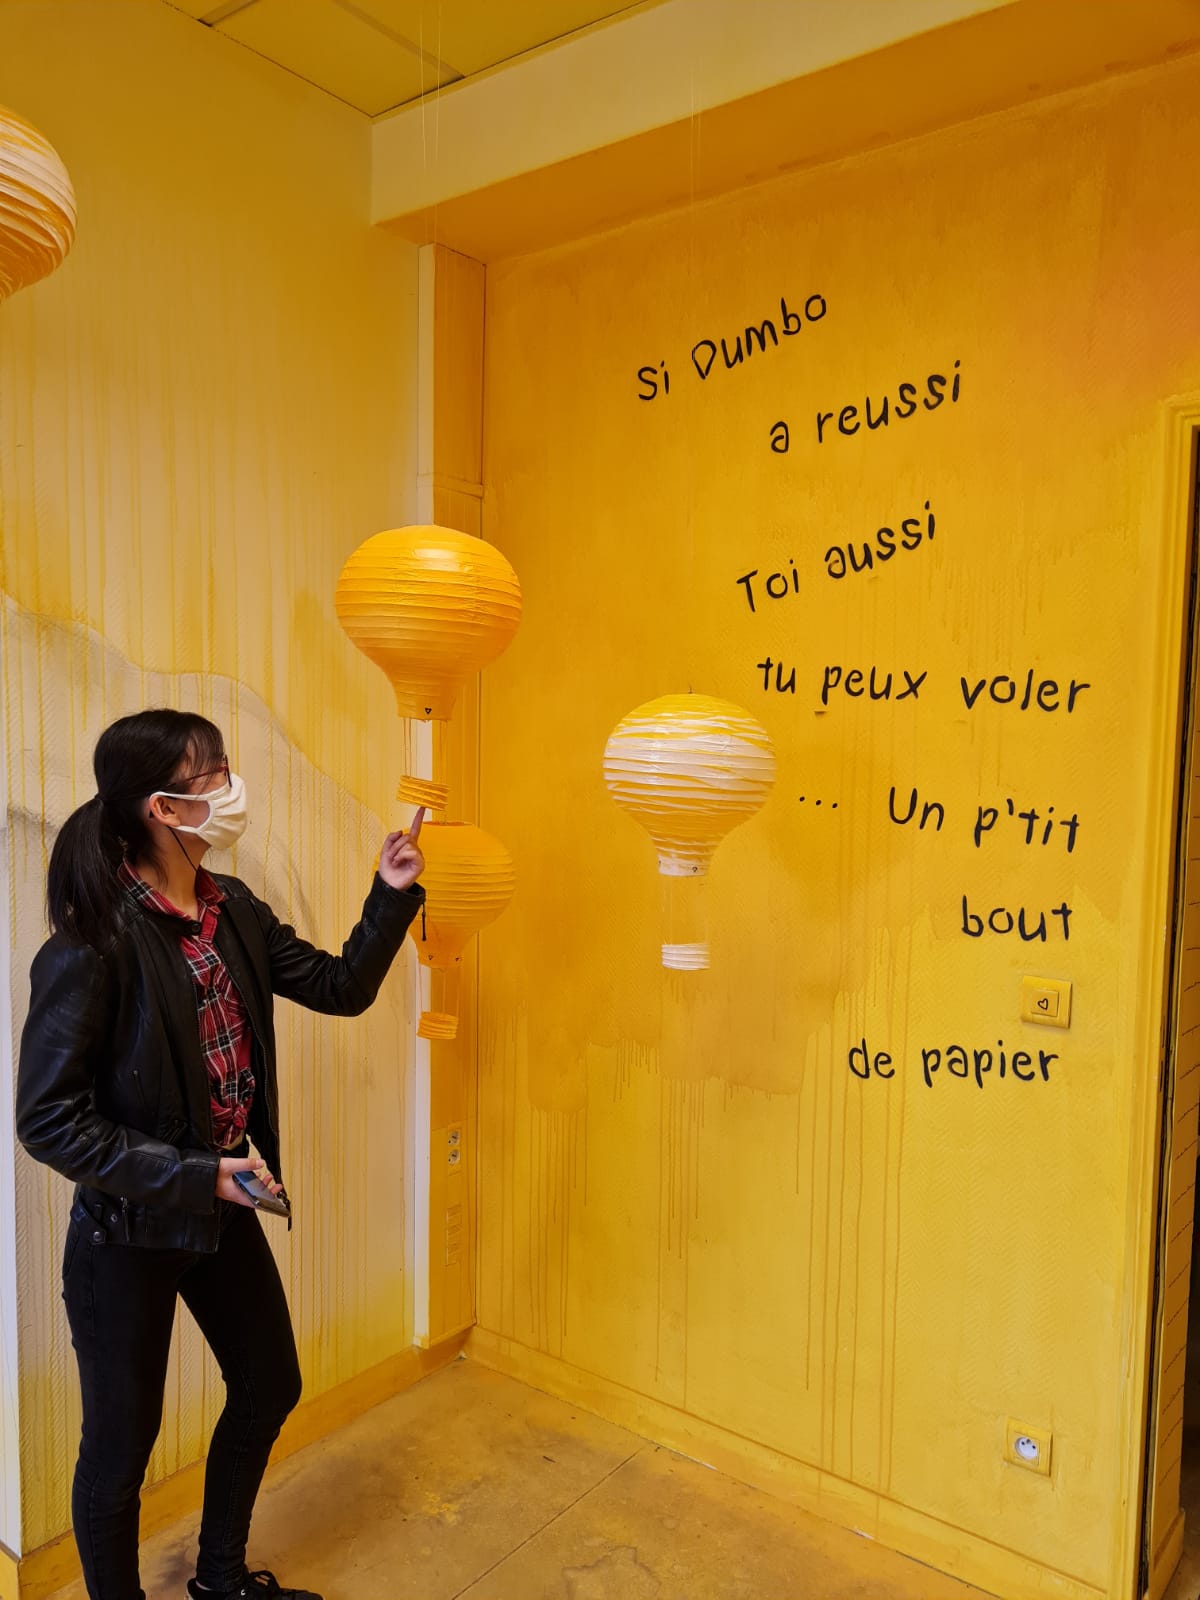 Si Dumbo
a reussi
Toi aussi
tu peux voler
... Un p'tit
bout
de papier